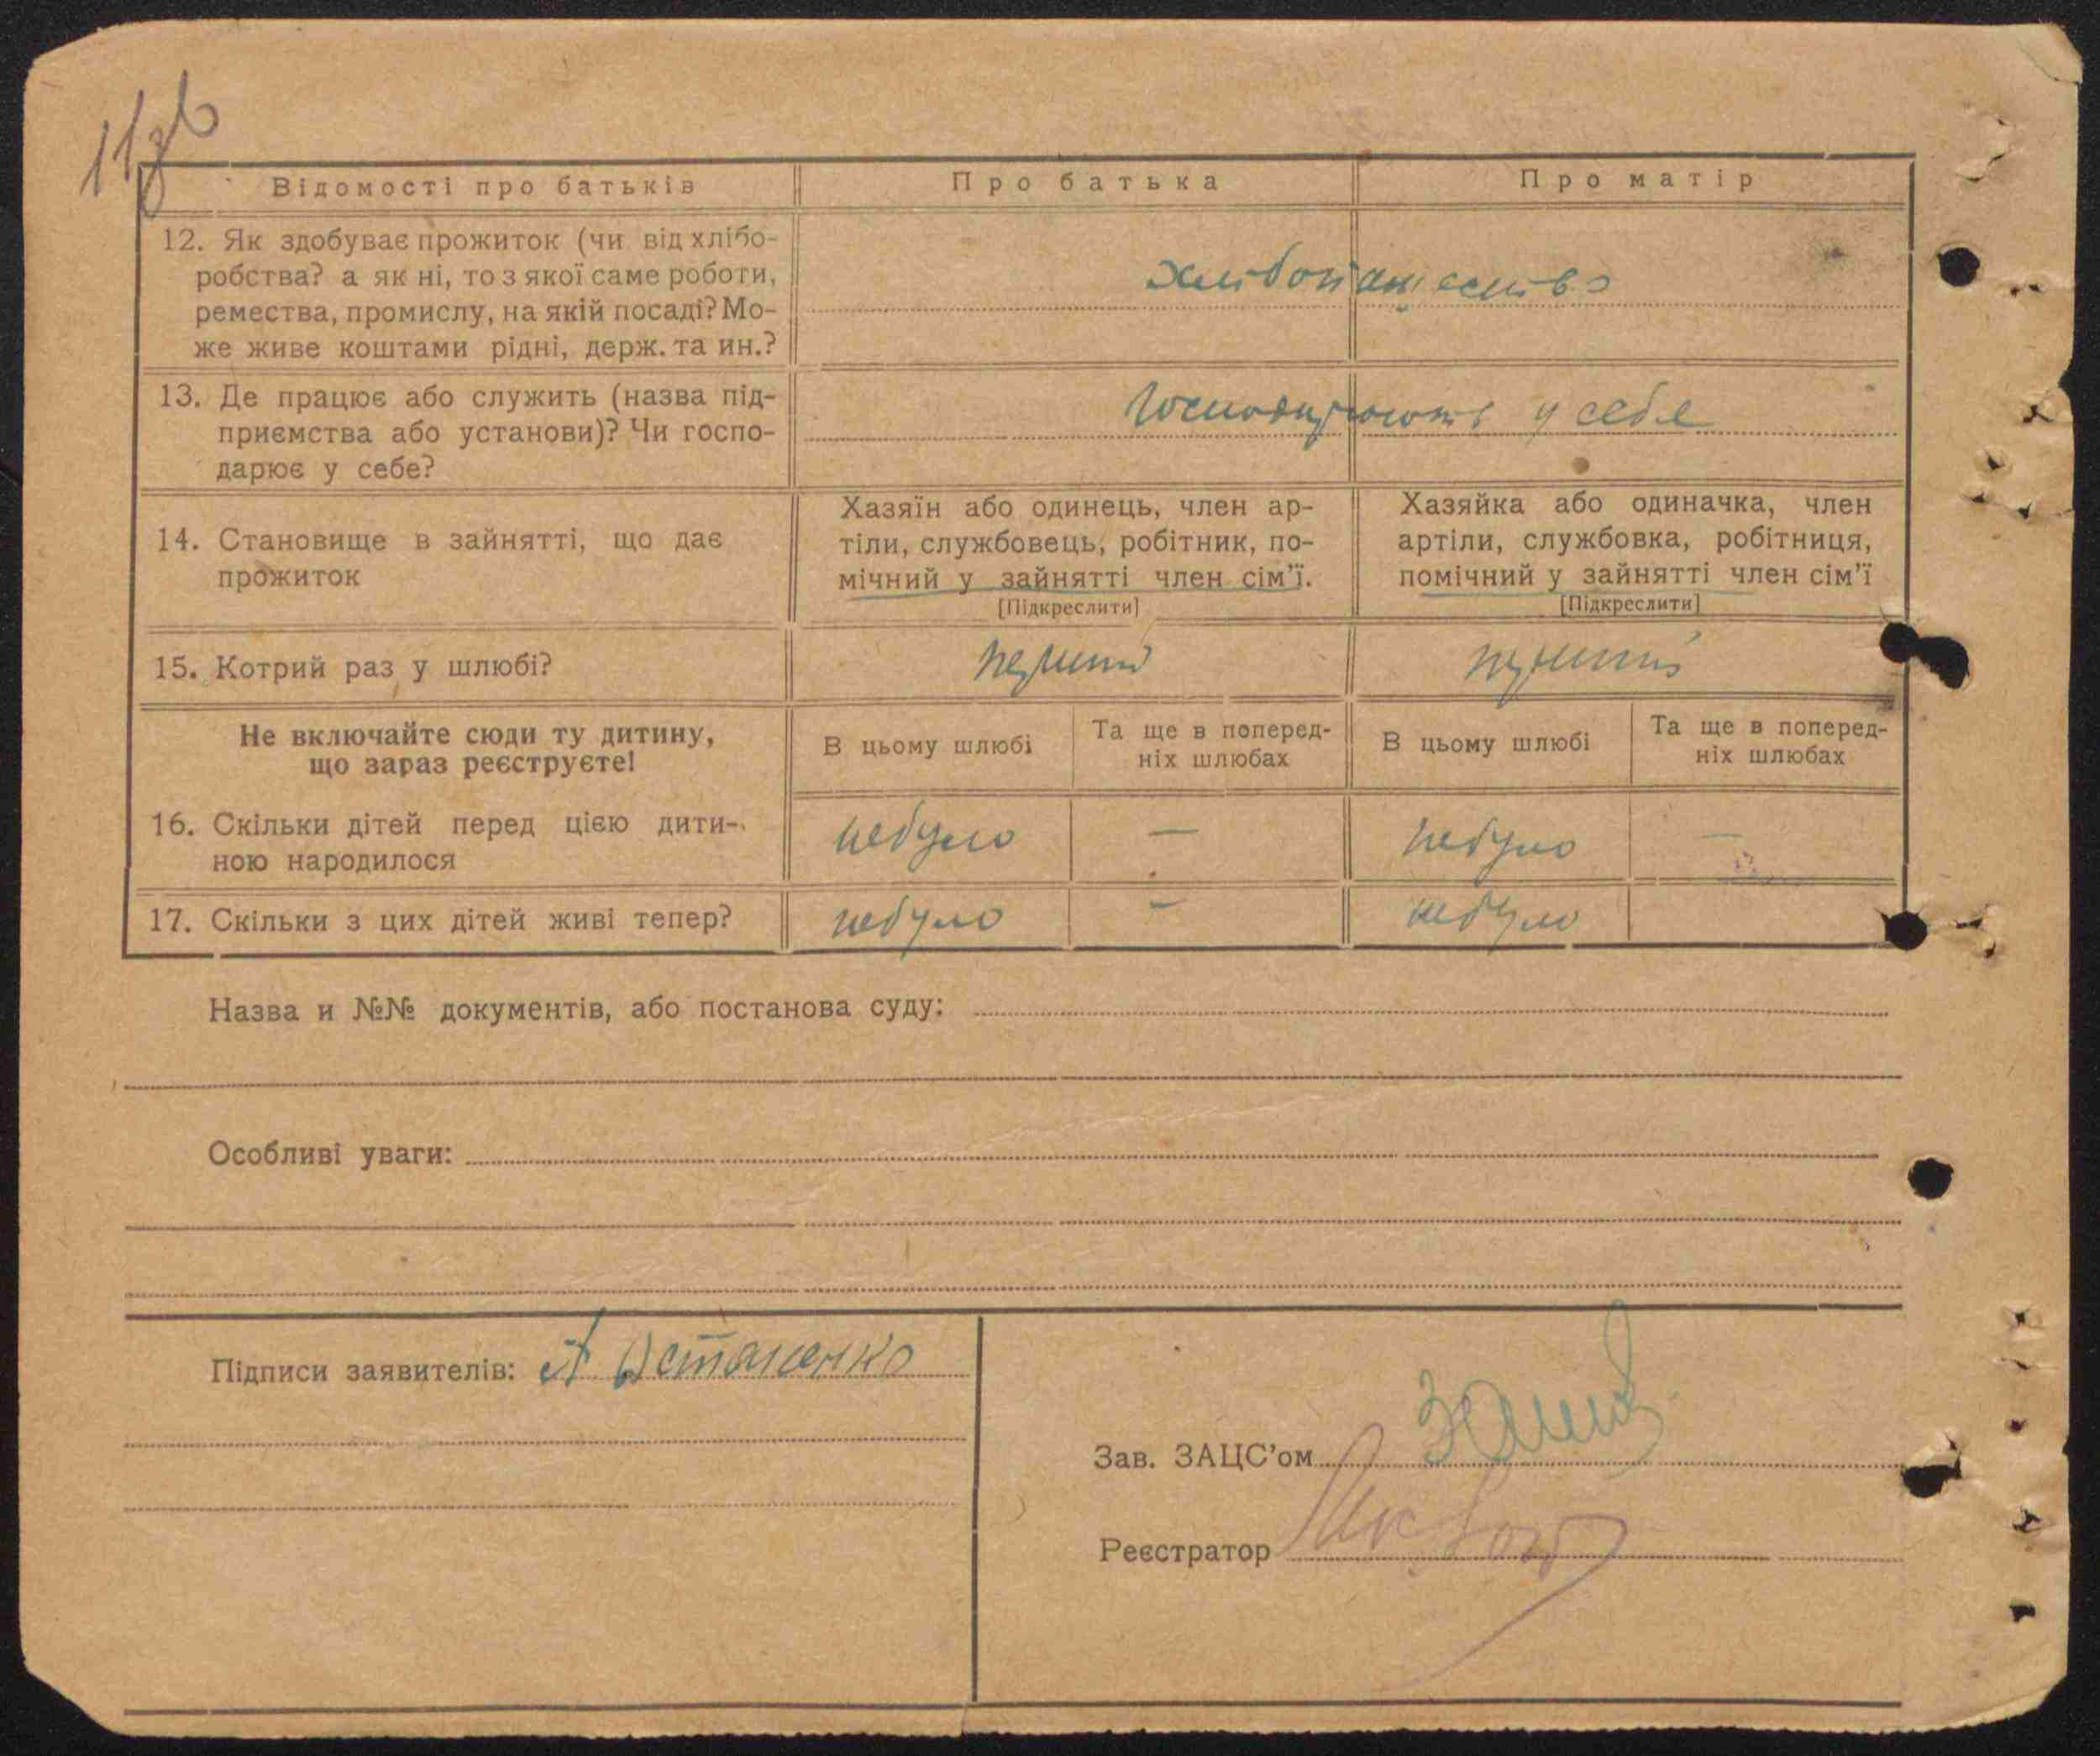 11зв
Відомості про батьків Про батька Про матір
12. Як здобуває прожиток (чи від хлібо-
робства? а як ні, то з якої саме роботи,
ремества, промислу, на якій посаді? Мо-
же живе коштами рідні, держ. та ин.?
13. Де працює або служить (назва під-
приємства або установи)? Чи госпо-
дарює у себе?
Господарюють у себе
14. Становище в зайнятті, що дає
прожиток
Хазяїн або одинець, член ар-
тіли, службовець, робітник, по-
мічний у зайнятті член сім'ї.
[Підкреслити]
Хазяйка або одиначка, член
артіли, службовка, робітниця,
помічний у зайнятті член сім'ї
[Підкреслити]
15. Котрий раз у шлюбі? перший перший
Не включайте сюди ту дитину,
що зараз реєструєте!
В цьому шлюбі
Та ще в поперед-
ніх шлюбах
В цьому шлюбі
Та ще в поперед-
ніх шлюбах
16. Скільки дітей перед цією дити-
ною народилося
небуло — небуло —
17. Скільки з цих дітей живі тепер? небуло — небуло
Назва и №№ документів, або постанова суду:
Особливі уваги:
Підписи заявителів: А Остапенко
Зав. ЗАЦС'ом
Реєстратор